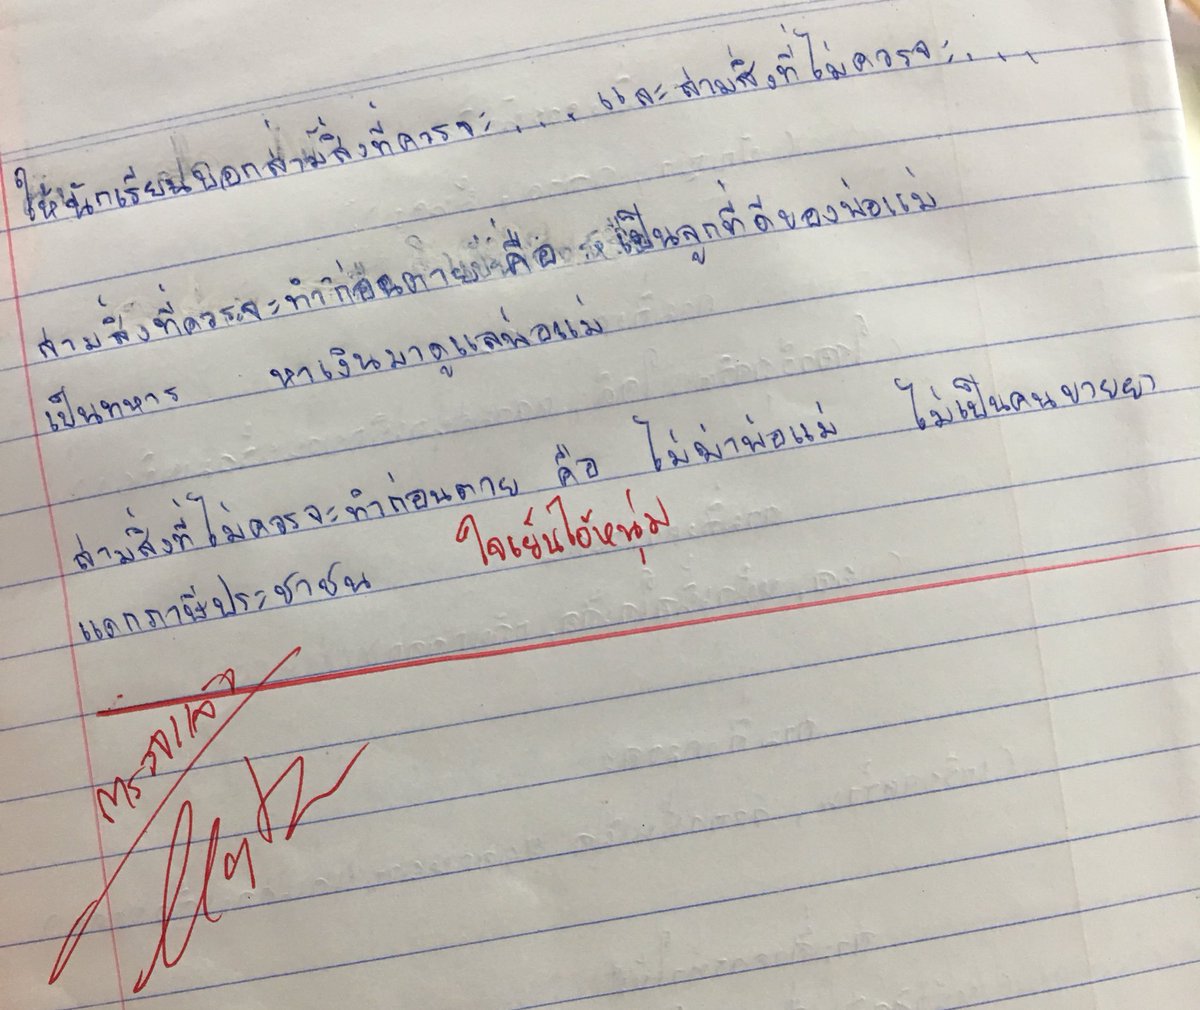 ให้นักเรียนบอกสามสิ่งที่ควรจะ.... และสามสิ่งที่ไม่ควรจะ....
สามสิ่งที่ควรจะทำก่อนตาย คือ เป็นลูกที่ดีของพ่อแม่
เป็นทหาร หาเงินมาดูแลพ่อแม่
สามสิ่งที่ไม่ควรจะทำก่อนตาย คือ ไม่ฆ่าพ่อแม่ ไม่เป็นคนขายยา
แดกภาษีประชาชน ใจเย็นไอ้หนุ่ม
ตรวจแล้ว